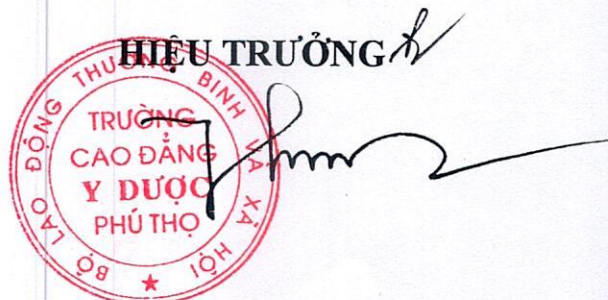 HIỆU TRƯỞNG
BỘ LAO ĐỘNG THƯƠNG BINH VÀ XÃ HỘI
TRƯỜNG
CAO ĐẲNG
Y DƯỢC
PHÚ THỌ